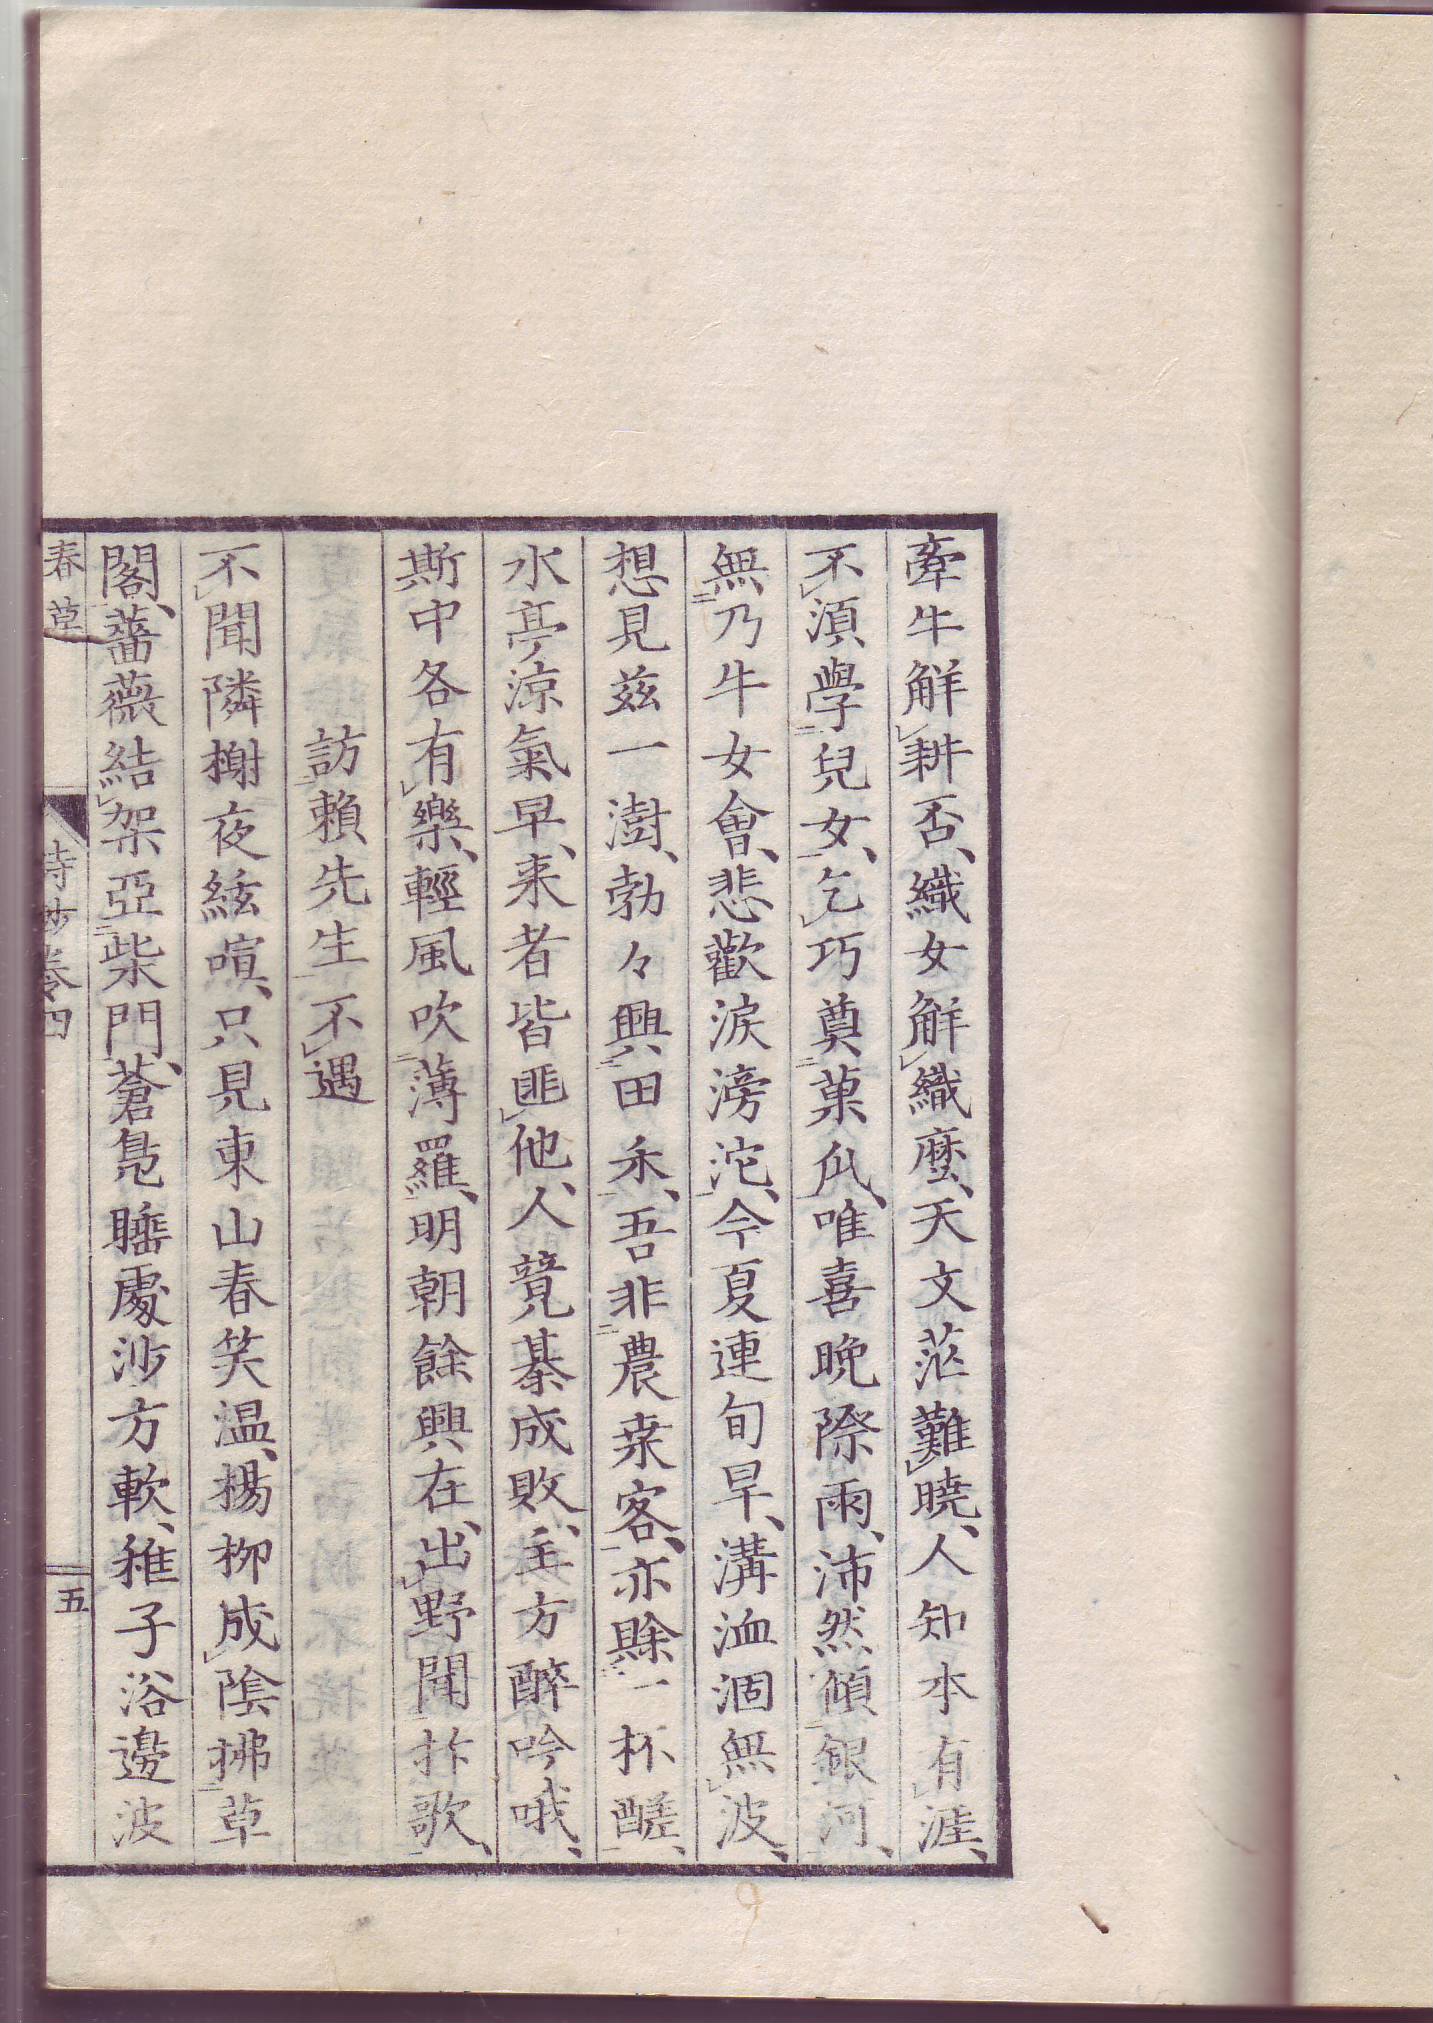 牽牛解耕否、織女解織麼、天文茫難曉、人知本有涯、
不須學兒女、乞巧奠菓瓜、唯喜晩際雨、沛然傾銀河、
無乃牛女會、悲歡淚滂沱、今夏連旬旱、溝洫涸無波、
想見茲一澍、勃々興田禾、吾非農桒客、亦賖一杯醝、
水亭涼氣早、来者皆匪他、人競棊成敗、主方醉吟哦、
斯中各有樂、輕風吹薄羅、明朝餘興在、出野聞抃歌、
訪賴先生不遇
不聞隣榭夜絃喧、只見東山春笑温、楊柳成陰拂草
閣、薔薇結架亞柴門、蒼鳧睡處沙方軟、稚子浴邊波
春草 詩抄卷四 五